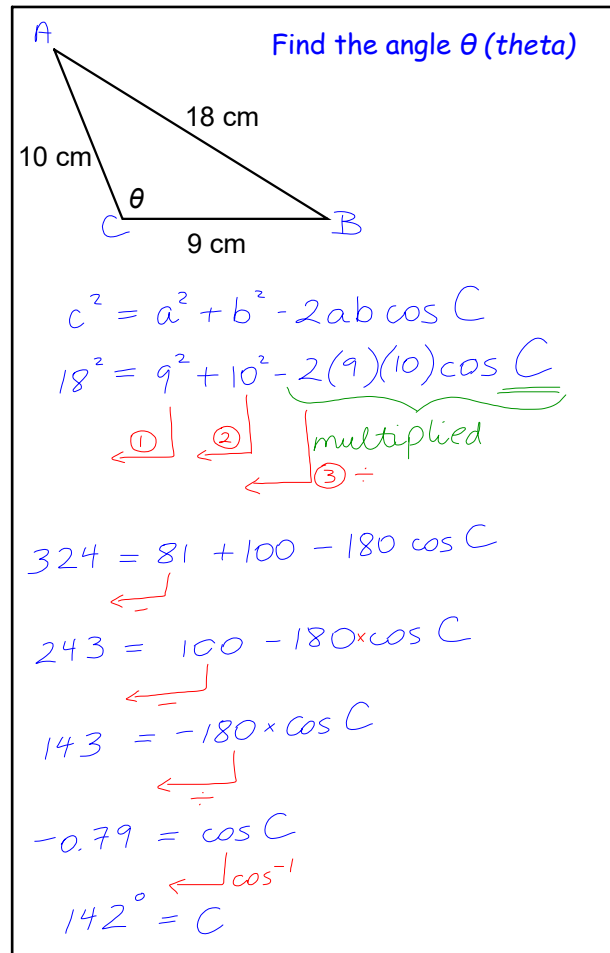 Find the angle θ (theta)
A
18 cm
10 cm
θ
C
B
9 cm
c² = a² + b² - 2ab cos C
18² = 9² + 10² - 2(9)(10) cos C
① ② multiplied
③ ÷
324 = 81 + 100 - 180 cos C
−
243 = 100 - 180 × cos C
−
143 = -180 × cos C
÷
-0.79 = cos C
cos⁻¹
142° = C